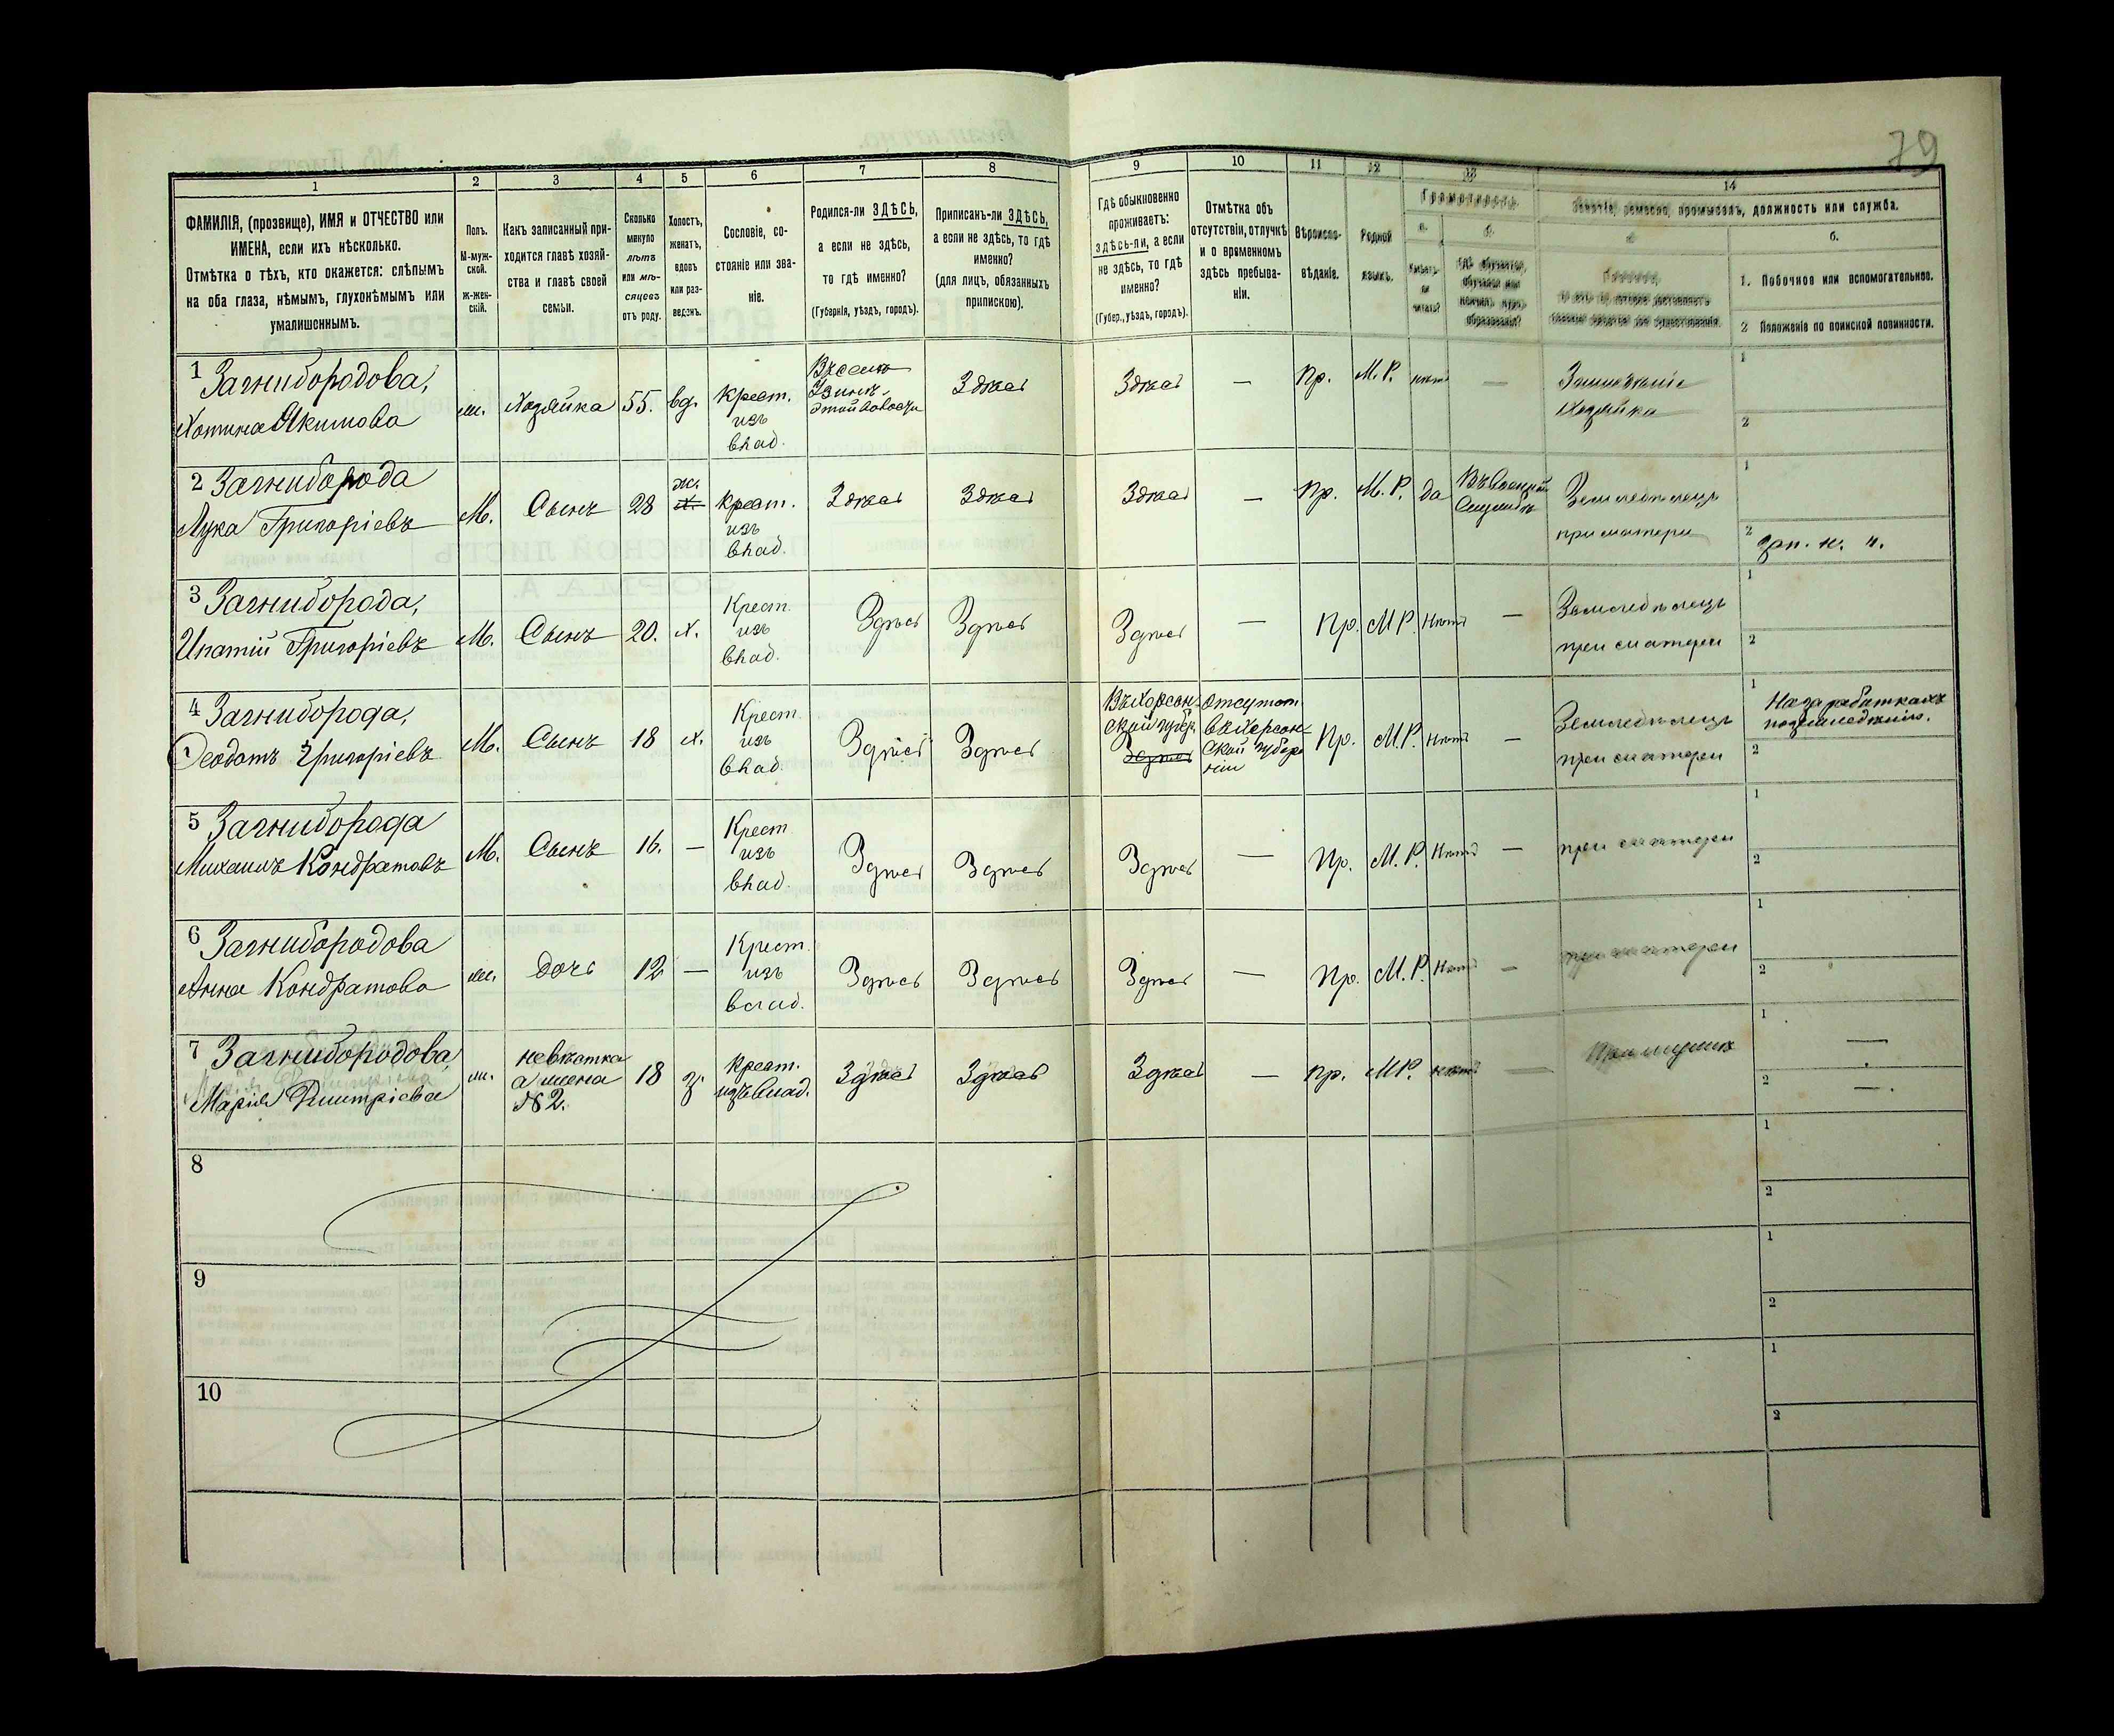 79
1
2
3
4
5
6
7
8
9
10
11
12
13
14
ФАМИЛІЯ, (прозвище), ИМЯ и ОТЧЕСТВО или
ИМЕНА, если ихъ нѣсколько.
Отмѣтка о тѣхъ, кто окажется: слѣпымъ
на оба глаза, нѣмымъ, глухонѣмымъ или
умалишеннымъ.
Полъ.
М-муж-
ской.
Ж-жен-
скій.
Какъ записанный при-
ходится главѣ хозяй-
ства и главѣ своей
семьи.
Сколько
минуло
лѣтъ
или мѣ-
сяцевъ
отъ роду.
Холостъ,
женатъ,
вдовъ
или раз-
веденъ.
Сословіе, со-
стояніе или зва-
ніе.
Родился-ли ЗДѢСЬ,
а если не здѣсь,
то гдѣ именно?
(Губернія, уѣздъ, городъ).
Приписанъ-ли ЗДѢСЬ,
а если не здѣсь, то гдѣ
именно?
(для лицъ, обязанныхъ
припискою).
Гдѣ обыкновенно
проживаетъ:
здѣсь-ли, а если
не здѣсь, то гдѣ
именно?
(Губер., уѣздъ, городъ).
Отмѣтка объ
отсутствіи, отлучкѣ
и о временномъ
здѣсь пребыва-
ніи.
Вѣроиспо-
вѣданіе.
Родной
языкъ.
Грамотность.
а.
б.
Умѣетъ-
ли
читать?
Гдѣ обучается,
обучался или
кончилъ курсъ
образованія?
Занятіе, ремесло, промыселъ, должность или служба.
а.
Главное,
то есть то, которое доставляетъ
главныя средства для существованія.
б.
1. Побочное или вспомогательное.
2 Положеніе по воинской повинности.
1 Загнибородова,
Якимова
ж.
Хозяйка
55.
вд.
Крест.
изъ
влад.
Здѣсь
Здѣсь
—
Пр.
М. Р.
нѣтъ
—
Хозяйка
1
2
2 Загниборода
Лука Григорьевъ
М.
Сынъ
28
ж.
х.
Крест.
изъ
влад.
Здѣсь
Здѣсь
Здѣсь
—
Пр.
М. Р.
да
Земледѣлецъ
при матери
1
2
3 Загниборода,
Ипатій Григоріевъ
М.
Сынъ
20.
х.
Крест.
изъ
влад.
Здѣсь
Здѣсь
Здѣсь
—
Пр.
М Р.
Нѣтъ
—
Земледѣлецъ
при матери
1
2
4 Загниборода,
Ѳеодотъ Григоріевъ
М.
Сынъ
18
х.
Крест.
изъ
влад.
Здѣсь
Здѣсь
Въ Херсон-
ской губер.
Здѣсь
Отсутст.
в Херсон-
ской губер
ніи
Пр.
М. Р.
Нѣтъ
—
Земледѣлецъ
при матери
1
На заработкахъ
по земледѣлію.
2
5 Загниборода
Михаилъ Кондратовъ
М.
Сынъ
16.
—
Крест
изъ
влад.
Здѣсь
Здѣсь
Здѣсь
—
Пр.
М. Р.
Нѣтъ
—
при матери
1
2
6 Загнибородова
Анна Кондратова
ж.
дочь
12
—
Крест.
изъ
влад.
Здѣсь
Здѣсь
Здѣсь
—
Пр.
М. Р.
Нѣтъ
—
при матери
1
2
7 Загнибородова,
Марія Дмитріева
ж.
невѣстка
а жена
№ 2.
18
з.
Крест.
изъ влад.
Здѣсь
Здѣсь
Здѣсь
—
Пр.
М Р.
нѣтъ
—
При мужѣ
1
—
2
—.
8
1
2
9
1
2
10
1
2